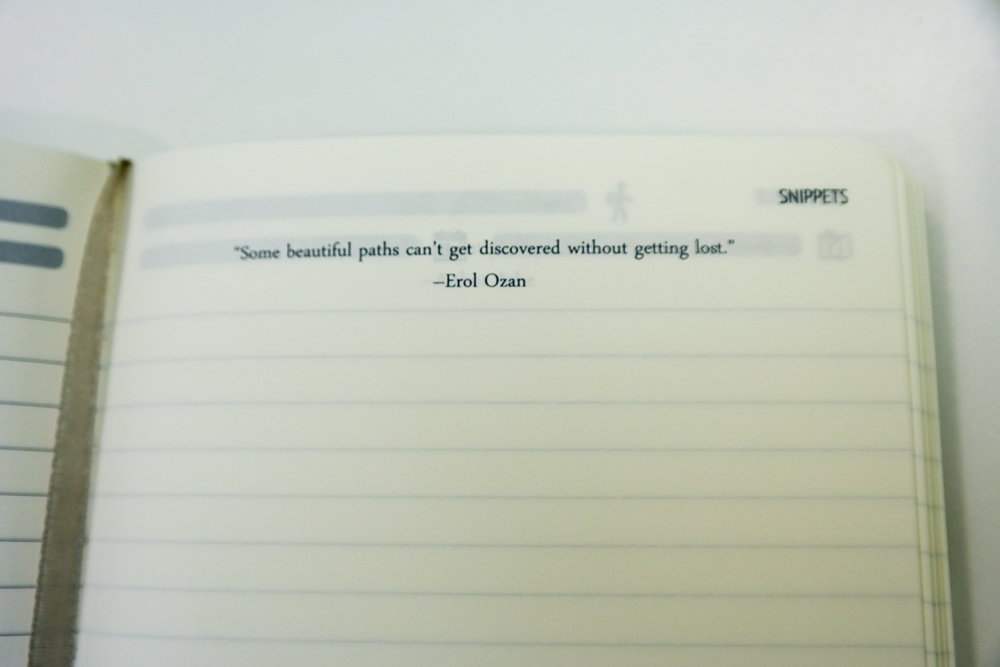 SNIPPETS
“Some beautiful paths can’t get discovered without getting lost.”
–Erol Ozan